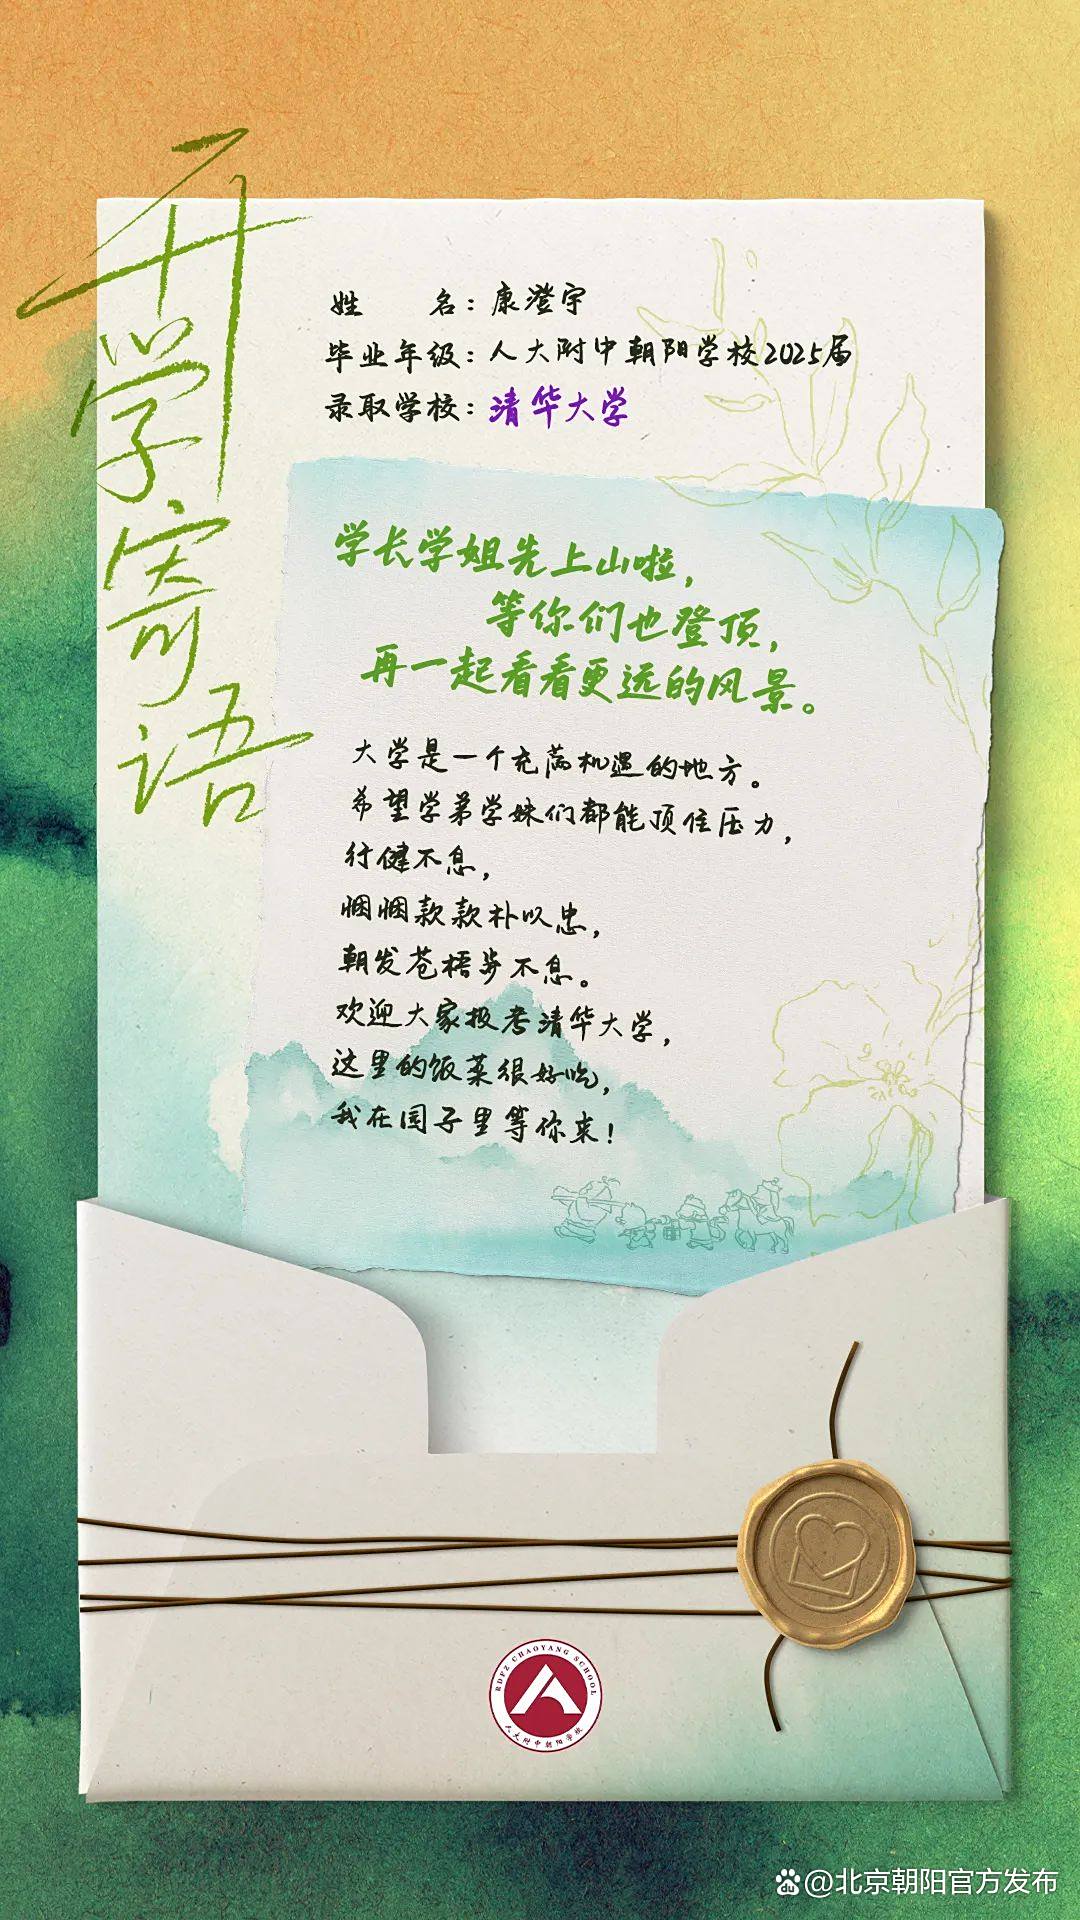 开学寄语
姓 名：康澄宇
毕业年级：人大附中朝阳学校2025届
录取学校：清华大学
学长学姐先上山啦，
等你们也登顶，
再一起看看更远的风景。
大学是一个充满机遇的地方。
希望学弟学妹们都能顶住压力，
行健不息，
悃悃款款朴以忠，
朝发苍梧步不息。
欢迎大家报考清华大学，
这里的饭菜很好吃，
我在园子里等你来！
RDFZ CHAOYANG SCHOOL
人大附中朝阳学校
Bai du @北京朝阳官方发布